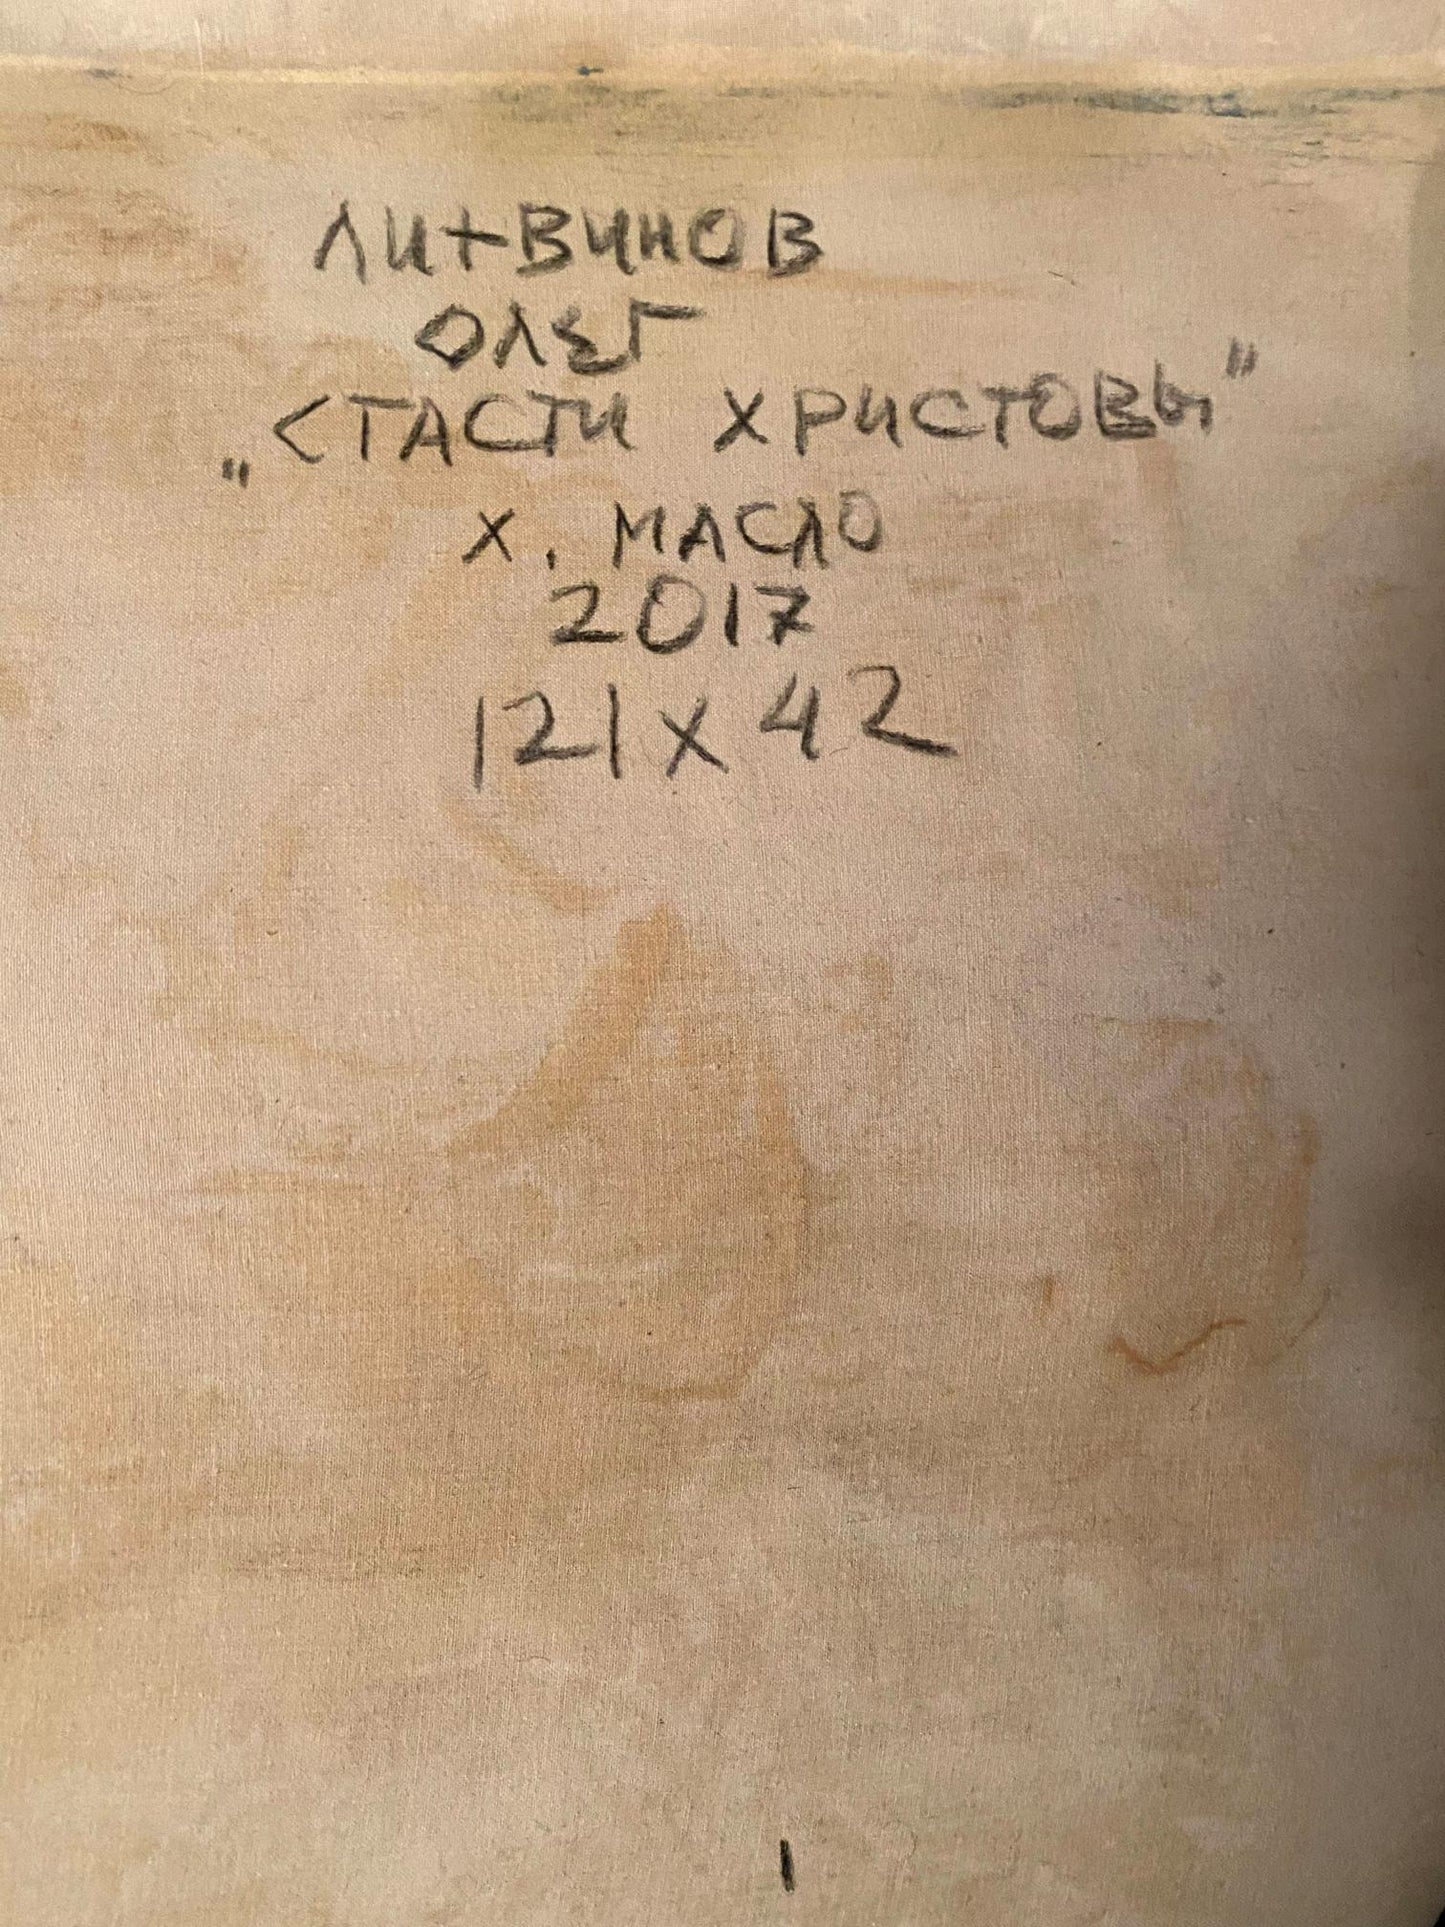 ЛИТВИНОВ
ОЛЕГ
„СТАСТИ ХРИСТОВЫ"
Х. МАСЛО
2017
121х42
1